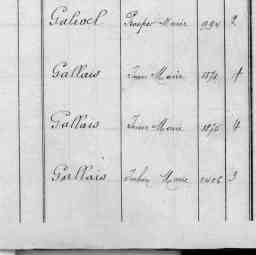 Galvoel Prosper Marie 994 2
Gallais Jean Marie 1871 4
Gallais Jean Marie 1875 4
Gallais Marie 3